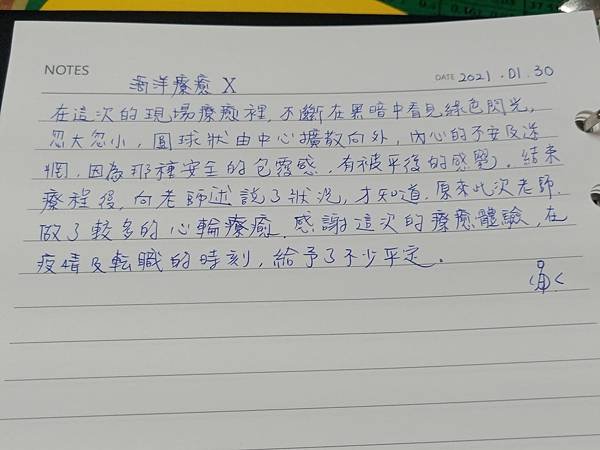 NOTES
海洋療癒 X
DATE 2021.01.30
在這次的現場療癒裡,不斷在黑暗中看見綠色閃光,
忽大忽小,圓球狀由中心擴散向外,內心的不安及迷
惘,因為那種安全的包覆感,有被平復的感覺,結束
療程後,向老師述說了狀況,才知道,原來此次老師
做了較多的心輪療癒,感謝這次的療癒體驗,在
疫情及転職的時刻,給予了不少平定。